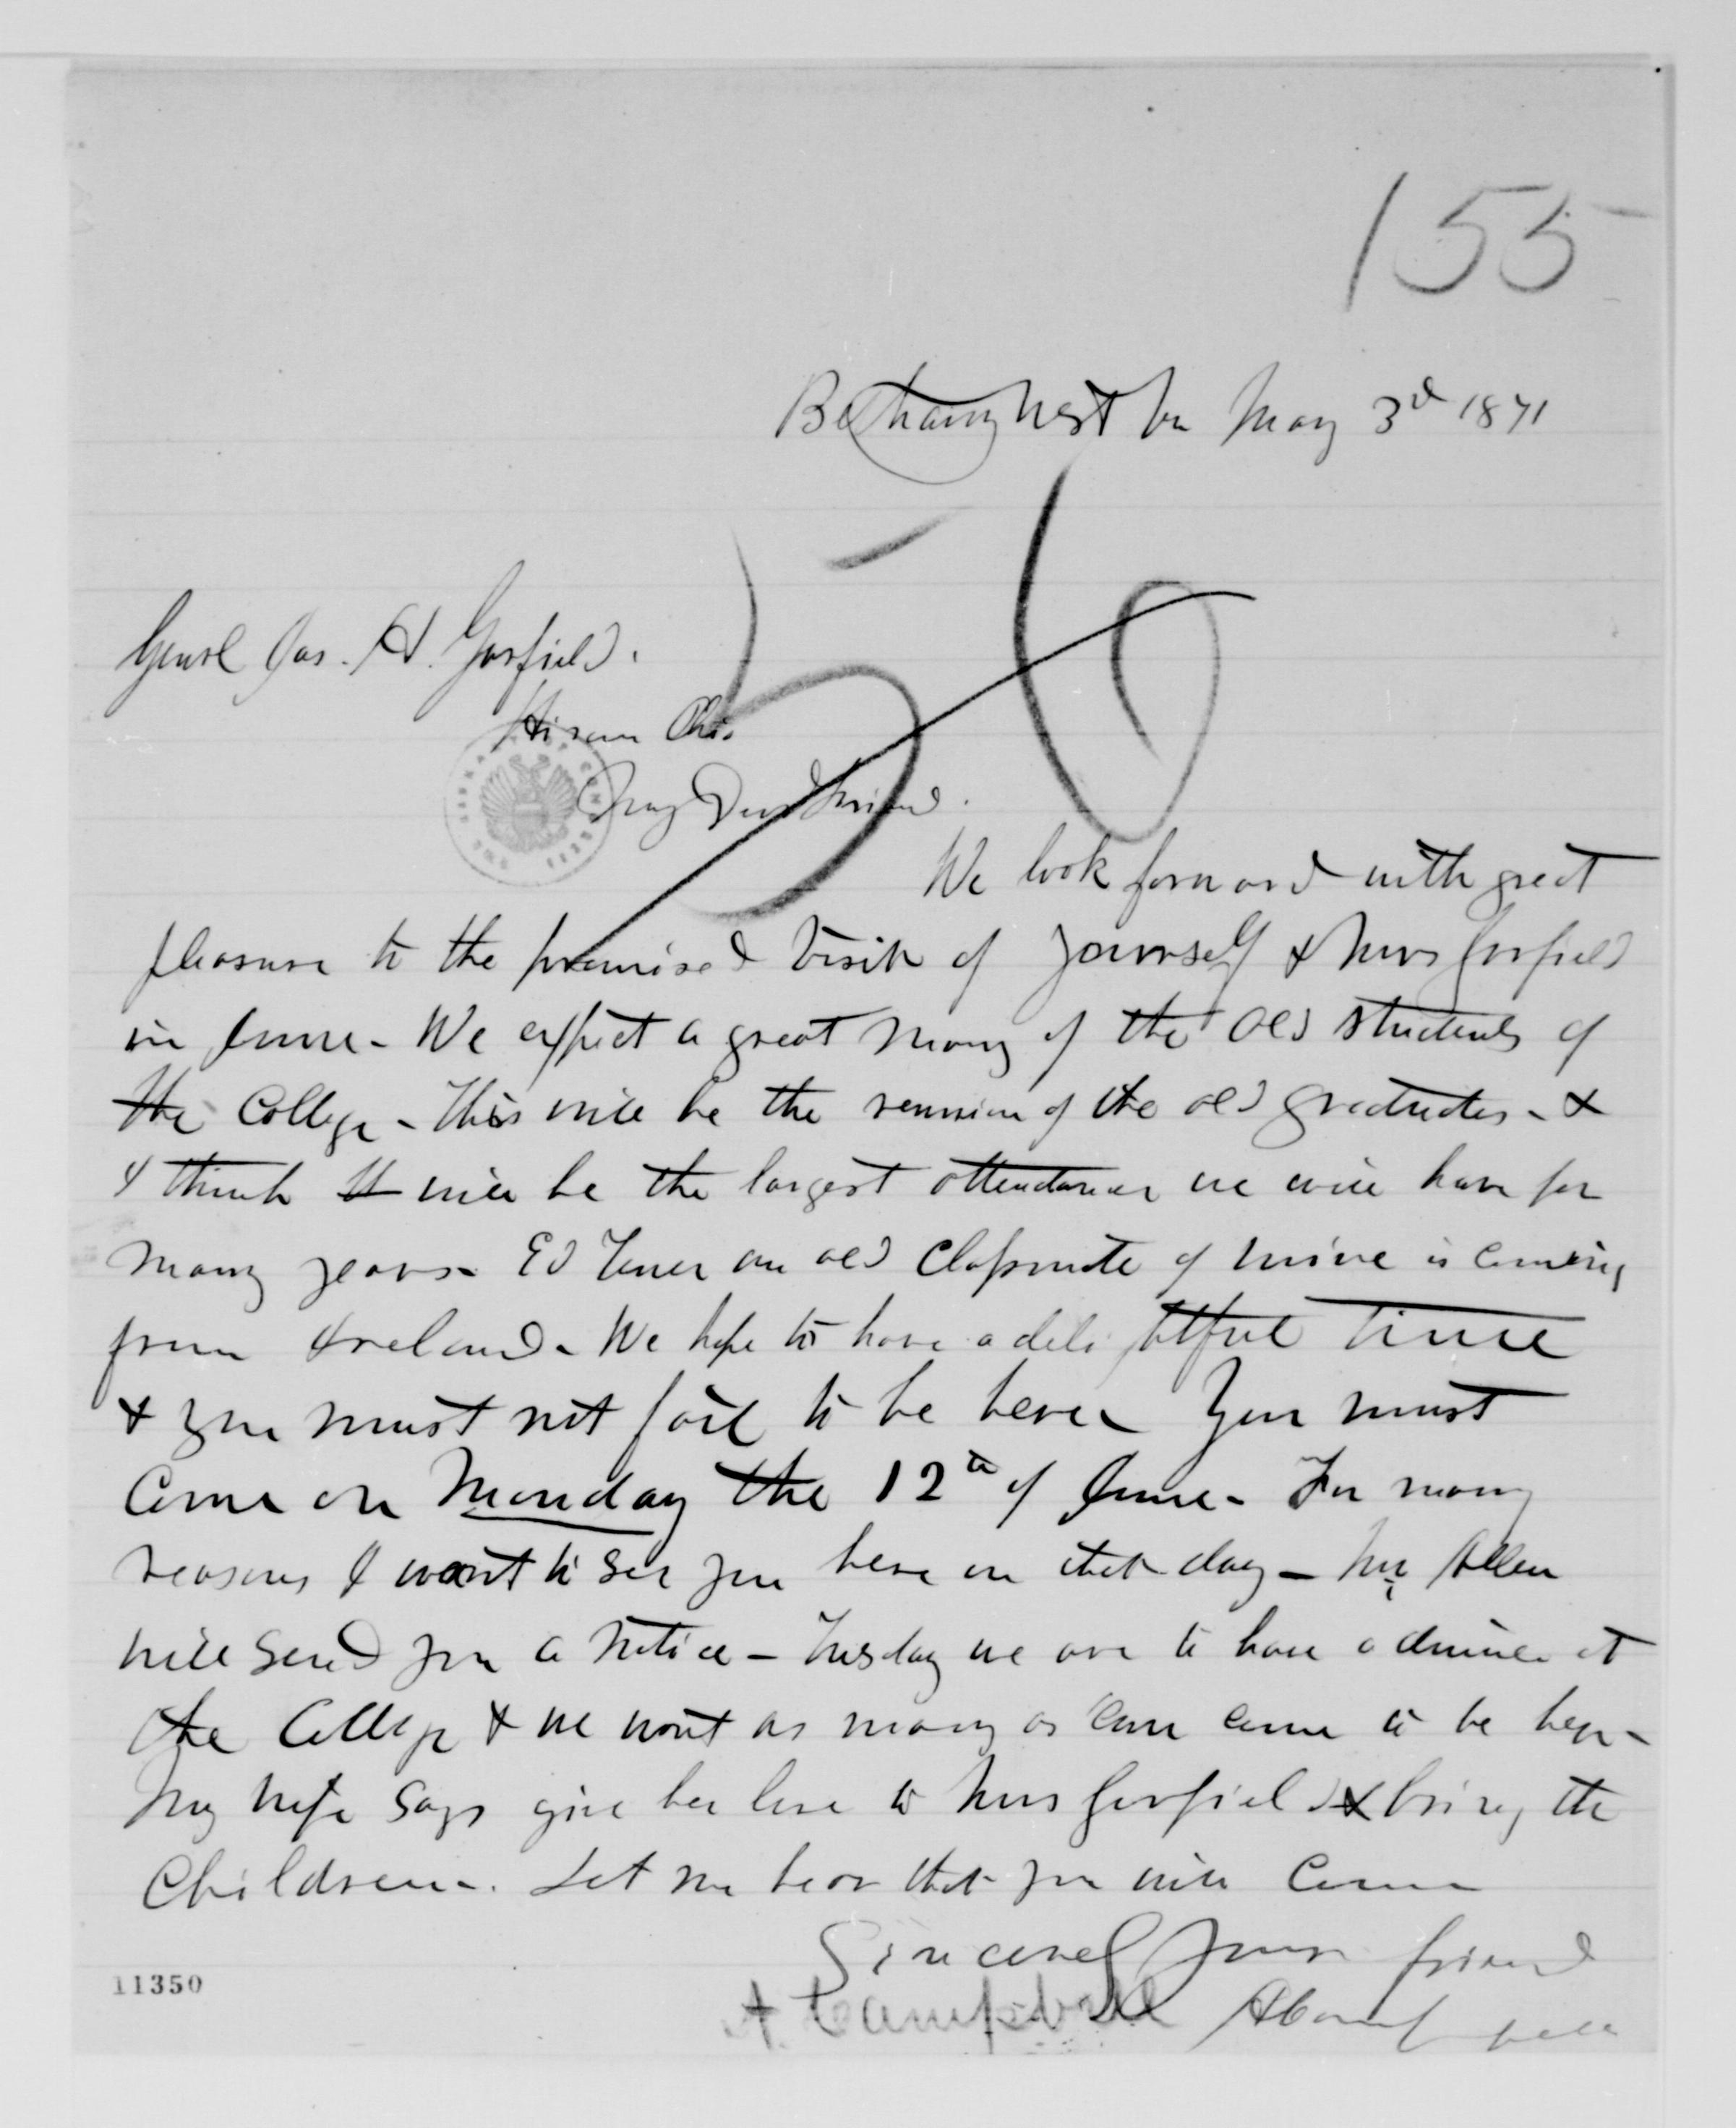 155
Bethany West Va May 3d 1871
56
Genrl Jas. A. Garfield.
Hiram Ohio
My Dear Friend.
We look forward with great
pleasure to the promised visit of yourself & Mrs Garfield
in June - We expect a great many of the old students of
the College - This will be the reunion of the old graduates - &
I think it will be the largest attendance we will have for
many years - Ed Tener an old classmate of mine is coming
from Ireland - We hope to have a delightful time
& you must not fail to be here - You must
come on Monday the 12th of June - For many
reasons I want to see you here on that day - Mr Allen
will send you a notice - Tuesday we are to have a dinner at
the College & we want as many as can come to be here -
My wife says give her love to Mrs Garfield & bring the
Children -. Let me hear that you will come
Sincerely your friend
A. Campbell A Campbell
11350